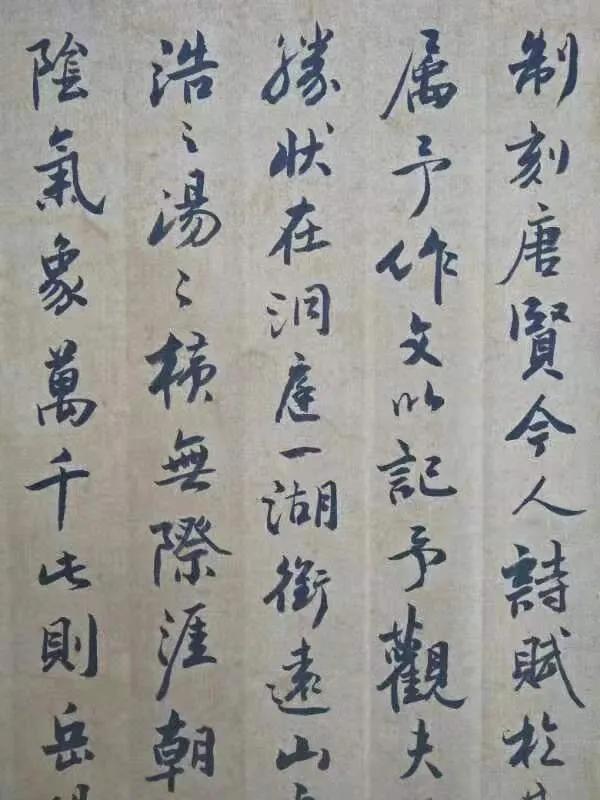 制刻唐賢今人詩賦於
属予作文以記予觀夫
勝狀在洞庭一湖銜遠山
浩〻湯〻横無際涯朝
陰氣象萬千此則岳